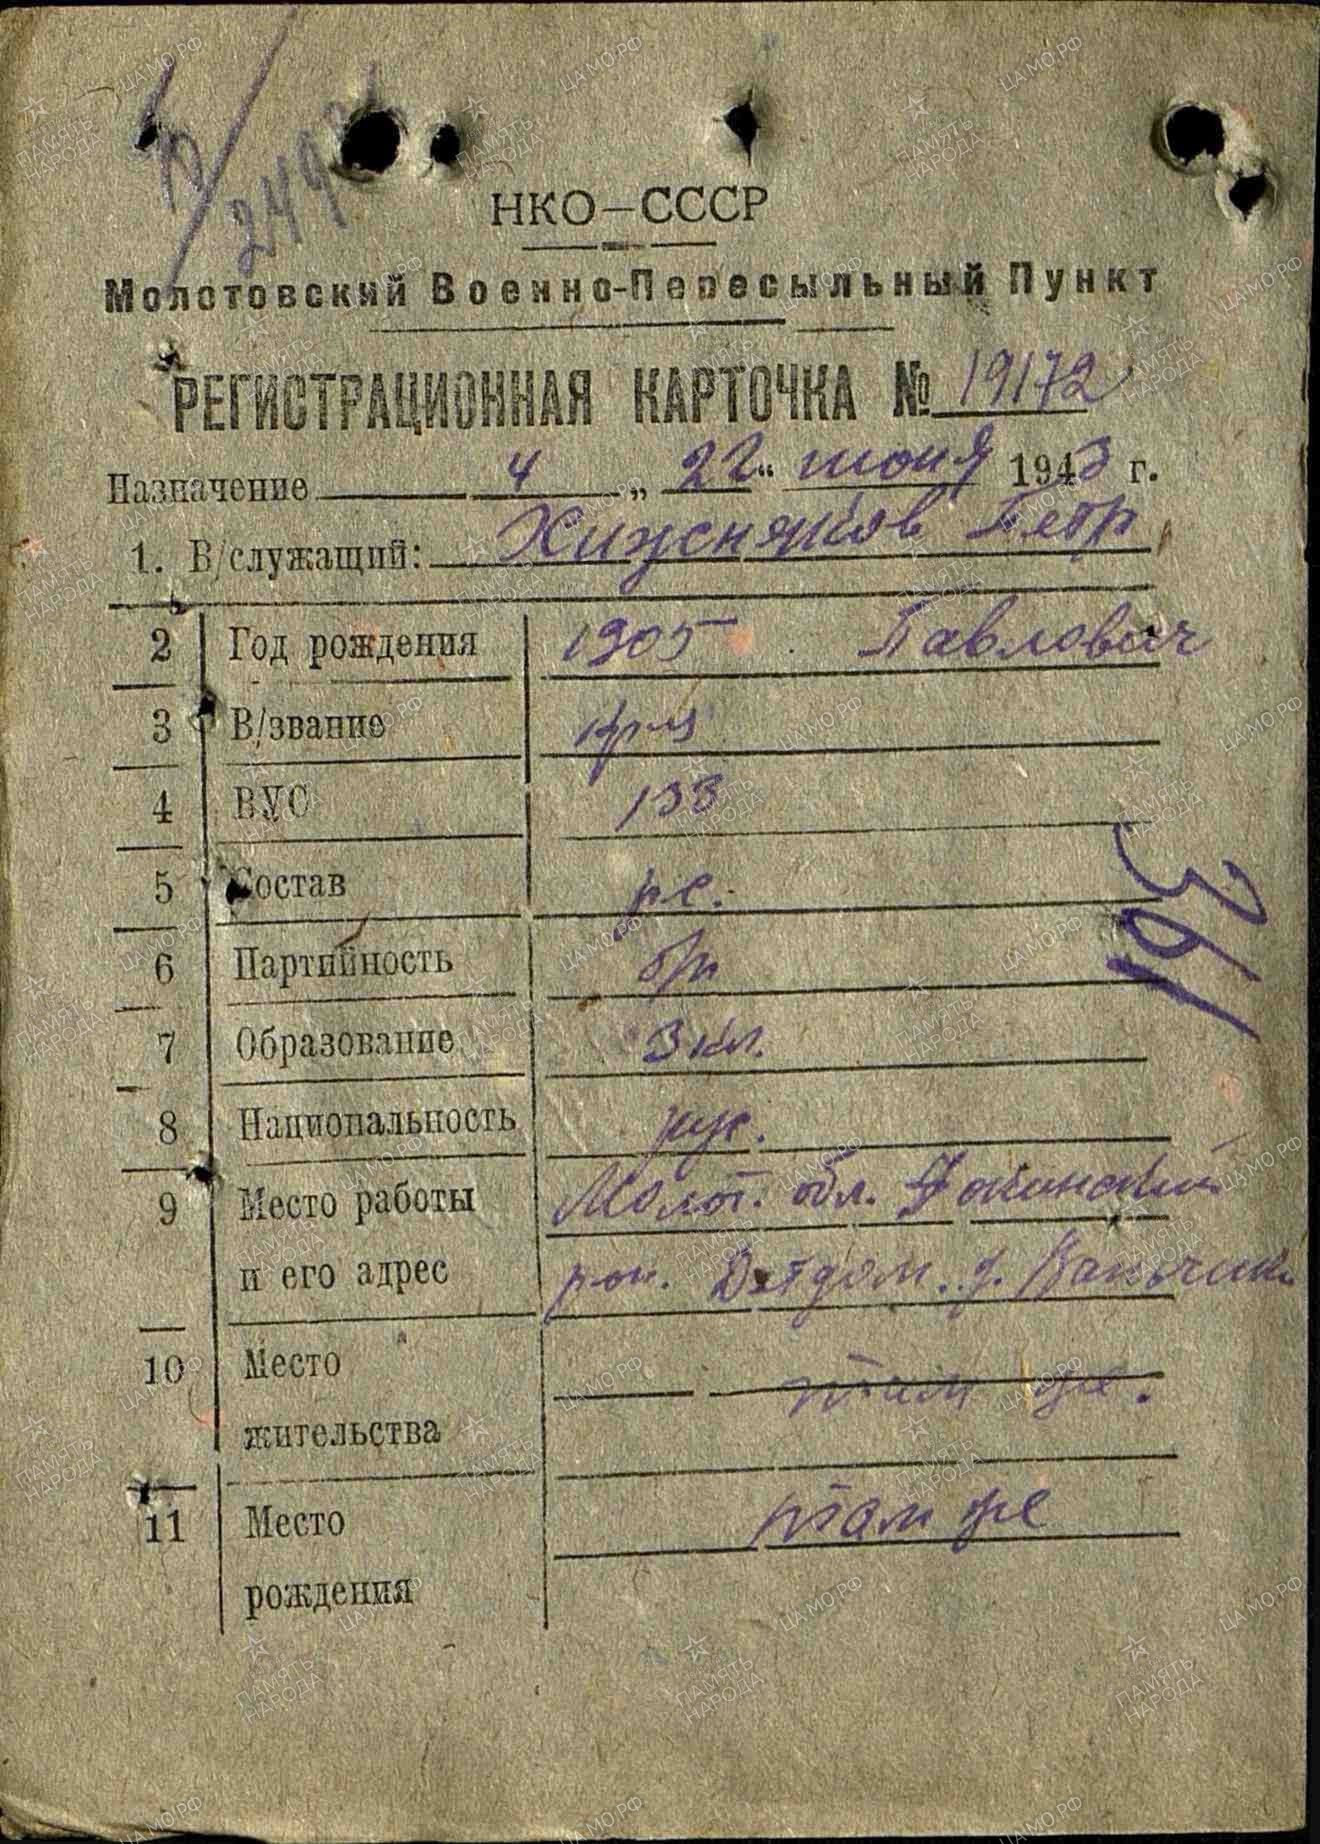 НКО–СССР
Молотовский Военно-Пересыльный Пункт
РЕГИСТРАЦИОННАЯ КАРТОЧКА № 19172
Назначение 4 „22“ июня 1943 г.
1. В/служащий: Хижняков Петр
2 Год рождения 1905 Павлович
3 В/звание кр-ц
4 ВУС 133
5 Состав рс.
6 Партийность б/п
7 Образование 3 кл.
8 Национальность рус.
361
9 Место работы Молот. обл.
и его адрес рон. Детдом. д.
10 Место там же.
жительства
11 Место там же
рождения
ПАМЯТЬ НАРОДА
ЦАМО.РФ